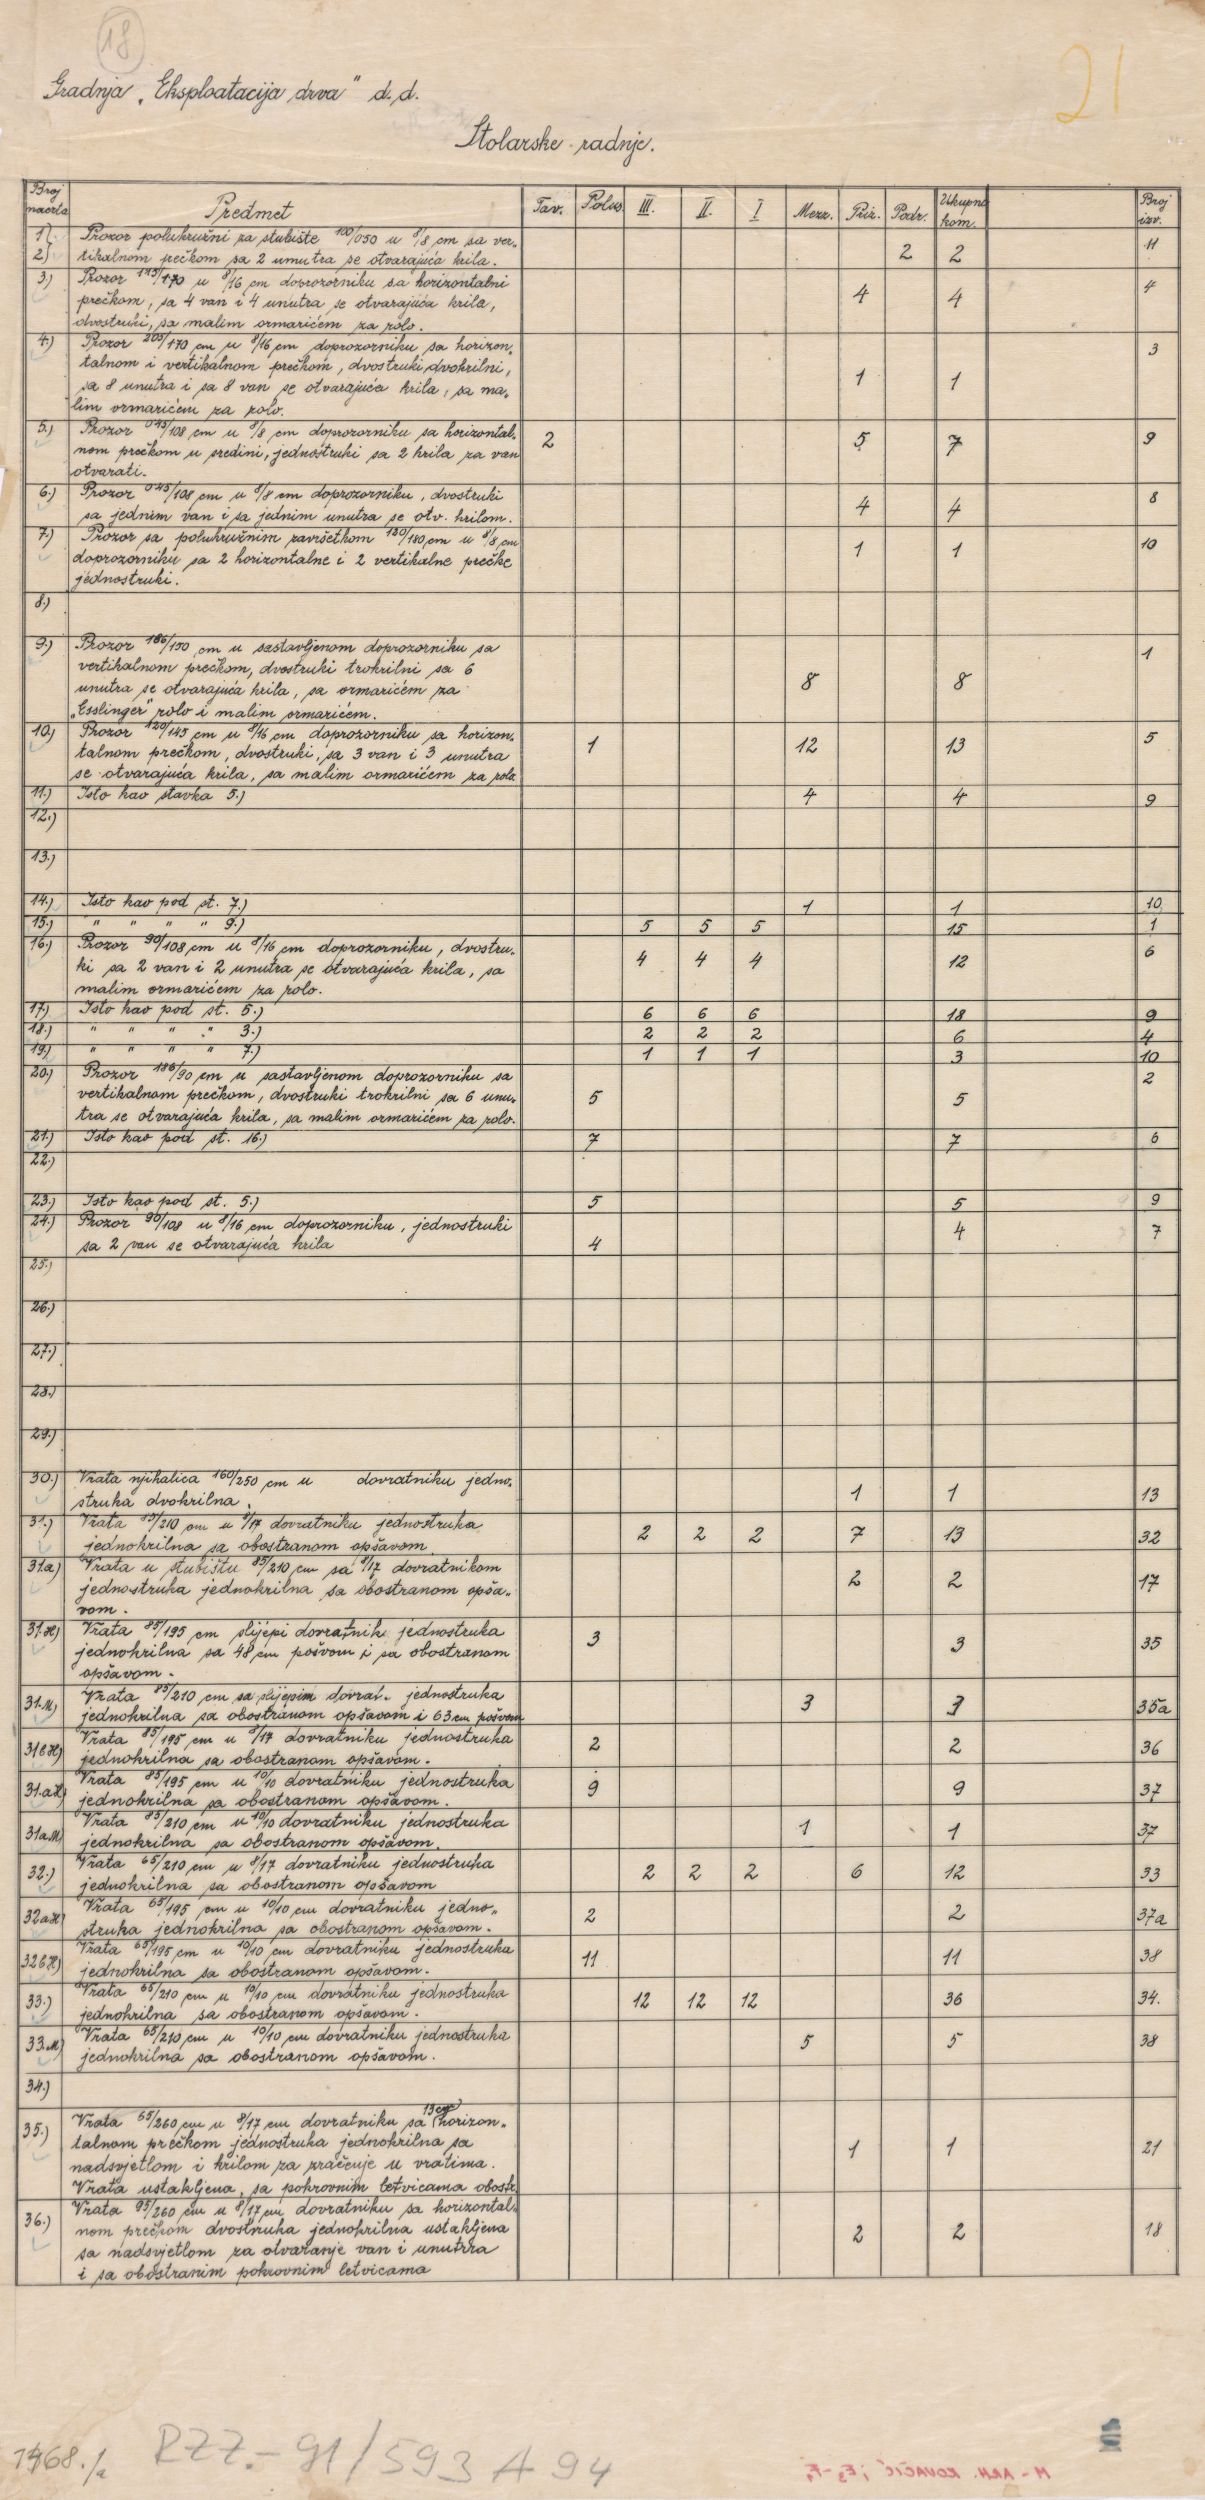 18
21
Gradnja „Eksploatacija drva" d.d.
Stolarske radnje.
Broj nacrta Predmet Tav. Polus. III. II. I Mezz. Priz. Podr. Ukupno kom. Broj izv.
1.) Prozor polukružni za stubište 100/050 u 8/8 cm sa ver-
2.) tikalnom prečkom sa 2 unutra se otvarajuća krila. 2 2 11
3.) Prozor 145/170 u 8/16 cm doprozorniku sa horizontalni
prečkom, sa 4 van i 4 unutra se otvarajuća krila, 4 4 4
dvostruki, sa malim ormarićem za rolo.
4.) Prozor 205/170 cm u 8/16 cm doprozorniku sa horizon-
talnom i vertikalnom prečkom, dvostruki dvokrilni, 3
sa 8 unutra i sa 8 van se otvarajuća krila, sa ma- 1 1
lim ormarićem za rolo.
5.) Prozor 045/108 cm u 8/8 cm doprozorniku sa horizontal-
nom prečkom u sredini, jednostruki sa 2 krila za van 2 5 7 9
otvarati.
6.) Prozor 045/108 cm u 8/8 cm doprozorniku, dvostruki
sa jednim van i sa jednim unutra se otv. krilom. 4 4 8
7.) Prozor sa polukružnim završetkom 120/180 cm u 8/8 cm
doprozorniku sa 2 horizontalne i 2 vertikalne prečke 1 1 10
jednostruki.
8.)
9.) Prozor 186/150 cm u sastavljenom doprozorniku sa
vertikalnom prečkom, dvostruki trokrilni sa 6 1
unutra se otvarajuća krila, sa ormarićem za 8 8
„Esslinger" rolo i malim ormarićem.
10.) Prozor 120/145 cm u 8/16 cm doprozorniku sa horizon-
talnom prečkom, dvostruki, sa 3 van i 3 unutra 1 12 13 5
se otvarajuća krila, sa malim ormarićem za rolo.
11.) Isto kao stavka 5.) 4 4 9
12.)
13.)
14.) Isto kao pod st. 7.) 1 1 10
15.) " " " " 9.) 5 5 5 15 1
16.) Prozor 90/108 cm u 8/16 cm doprozorniku, dvostru-
ki sa 2 van i 2 unutra se otvarajuća krila, sa 4 4 4 12 6
malim ormarićem za rolo.
17.) Isto kao pod st. 5.) 6 6 6 18 9
18.) " " " " 3.) 2 2 2 6 4
19.) " " " " 7.) 1 1 1 3 10
20.) Prozor 186/90 cm u sastavljenom doprozorniku sa 2
vertikalnom prečkom, dvostruki trokrilni sa 6 unu- 5 5
tra se otvarajuća krila, sa malim ormarićem za rolo.
21.) Isto kao pod st. 16.) 7 7 6
22.)
23.) Isto kao pod st. 5.) 5 5 9
24.) Prozor 90/108 u 8/16 cm doprozorniku, jednostruki
sa 2 van se otvarajuća krila 4 4 7
25.)
26.)
27.)
28.)
29.)
30.) Vrata njihalica 160/250 cm u dovratniku jedno-
struka dvokrilna. 1 1 13
31.) Vrata 85/210 cm u 8/17 dovratniku jednostruka
jednokrilna sa obostranom opšavom 2 2 2 7 13 32
31.a) Vrata u stubištu 85/210 cm sa 8/17 dovratnikom
jednostruka jednokrilna sa obostranom opša- 2 2 17
vom.
31.H) Vrata 85/195 cm slijepi dovratnik jednostruka
jednokrilna sa 48 cm pošvom i sa obostranom 3 3 35
opšavom.
31.M) Vrata 85/210 cm sa slijepim dovrat. jednostruka
jednokrilna sa obostranom opšavom i 63 cm pošvom 3 3 35a
31bH) Vrata 85/195 cm u 8/17 dovratniku jednostruka
jednokrilna sa obostranom opšavom. 2 2 36
31.aH) Vrata 85/195 cm u 10/10 dovratniku jednostruka
jednokrilna sa obostranom opšavom. 9 9 37
31a.M) Vrata 85/210 cm u 10/10 dovratniku jednostruka
jednokrilna sa obostranom opšavom. 1 1 37
32.) Vrata 65/210 cm u 8/17 dovratniku jednostruka
jednokrilna sa obostranom opšavom 2 2 2 6 12 33
32aH) Vrata 65/195 cm u 10/10 cm dovratniku jedno-
struka jednokrilna sa obostranom opšavom. 2 2 37a
32bH) Vrata 65/195 cm u 10/10 cm dovratniku jednostruka
jednokrilna sa obostranom opšavom. 11 11 38
33.) Vrata 65/210 cm u 10/10 cm dovratniku jednostruka
jednokrilna sa obostranom opšavom. 12 12 12 36 34.
33.M) Vrata 65/210 cm u 10/10 cm dovratniku jednostruka
jednokrilna sa obostranom opšavom. 5 5 38
34.)
35.) Vrata 65/260 cm u 8/17 cm dovratniku sa (13 cm) horizon-
talnom prečkom jednostruka jednokrilna sa
nadsvjetlom i krilom za zračenje u vratima. 1 1 21
Vrata ustakljena, sa pokrovnim letvicama obostr.
36.) Vrata 95/260 cm u 8/17 cm dovratniku sa horizontal-
nom prečkom dvostruka jednokrilna ustakljena 2 2 18
sa nadsvjetlom za otvaranje van i unutra
i sa obostranim pokrovnim letvicama
1468./a RZZ.- 91/593 A 94
M - ARH. KOVAČIĆ ; E3-F1